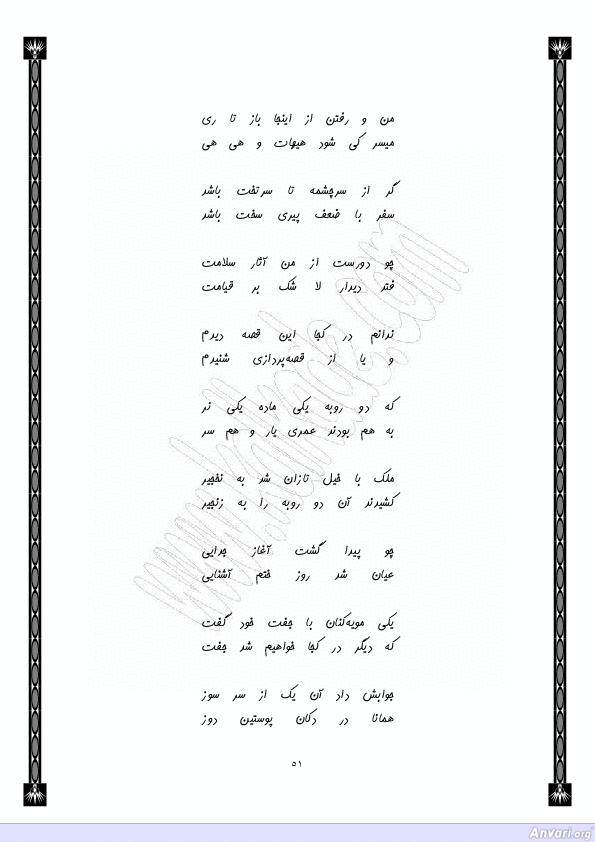 من و رفتن از اینجا باز تا ری
میسر کی شود هیهات و هی هی
گر از سرچشمه تا سر تفت باشد
سفر با ضعف پیری سفت باشد
چو دورست از من آثار سلامت
فتد دیدار لا شک بر قیامت
ندانم در کجا این قصه دیدم
و یا از قصه‌پردازی شنیدم
که دو روبه یکی ماده یکی نر
به هم بودند عمری یار و هم سر
ملک با خیل تازان شد به نخجیر
کشیدند آن دو روبه را به زنجیر
چو پیدا گشت آغاز جدایی
عیان شد روز ختم آشنایی
یکی مویه‌کنان با جفت خود گفت
که دیگر در کجا خواهیم شد جفت
جوابش داد آن یک از سر سوز
همانا در دکان پوستین دوز
۵۱
Anvari.org